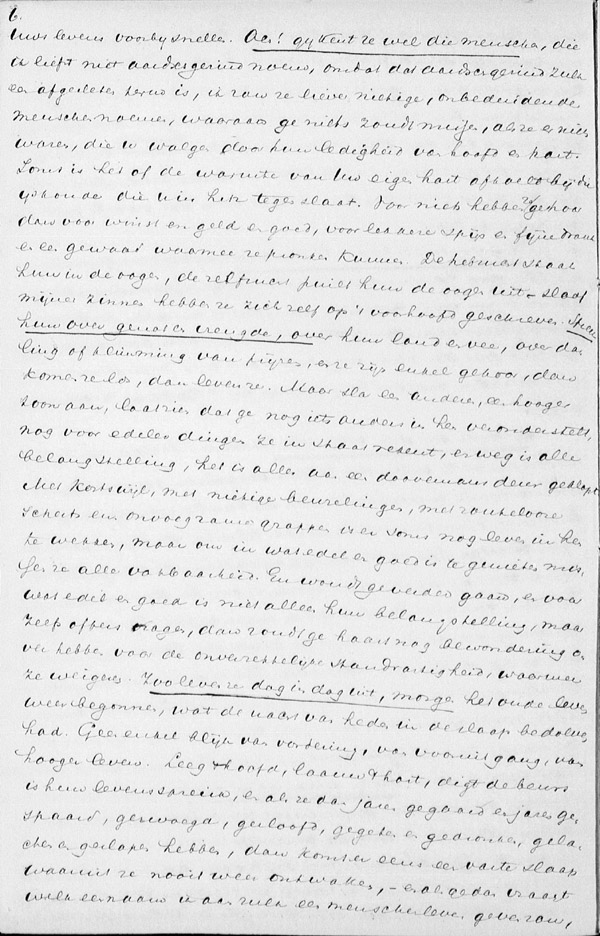 6.
Uws levens voorbij snellen. Ach! gij kent ze wel die menschen, die
ik liefst niet aardsgezind noem, omdat dat aardsgezind zulk
een afgesleten term is, ik zou ze liever nietige, onbeduidende
menschen noemen, waaraan ge niets zoudt missen, als ze er niet
waren, die u walgen door hun ledigheid van hoofd en hart.
Soms is het of de warmte van Uw eigen hart afkoelt bij die
ijskoude die u in hen tegenslaat. Voor niets hebben ze gehoor
dan voor winst en geld en goed, voor leckere spijs en fijne drank
en een gewaad waarmee ze pronken kunnen. De hebzucht staat
hun in de oogen, de zelfzucht puilt hun de oogen uit - slaaf
mijner zinnen hebben ze zich zelf op 't voorhoofd geschreven. Spreek
hun over genot en vreugde, over hun land en vee, over da-
ling of klimming van prijzen, en ze zijn enkel gehoor, dan
komen ze los, dan leven ze. Maar sla een anderen, een hooger
toon aan, laat zien dat ge nog iets anders in hen veronderstelt,
nog voor edeler dingen ze in staat rekent, en weg is alle
belangstelling, het is alles aan een doovemans deur geklopt.
Met kortswijl, met nietige beuzelingen, met zoutelooze
scherts en onvoegzame grappen is er soms nog leven in hen
te wekken, maar om in wat edel en goed is te genieten mis-
sen ze alle vatbaarheid. En wordt gevergd gaand, en voor
wat edel en goed is niet alleen hun belangstelling, maar
zelf offers vragen, dan zoudt ge haast nog bewondering o-
ver hebben voor de onverzettelijke standvastigheid, waarmee
ze weigeren. Zoo leven ze dag in dag uit, morgen het oude leven
weer begonnen, wat de nacht van heden in de slaap bedolven
had. Geen enkel blijk van vordering, van vooruitgang, van
hooger leven. Leeg 't hoofd, laauw 't hart, digt de beurs
is hun levensspreuk, en als ze dan jaren gegaard en jaren ge-
spaard, gezwoegd, gesloofd, gegeten en gedronken, gela-
chen en geslapen hebben, dan komt er eens een vaste slaap
waaruit ze nooit weer ontwaken, - en als ge dan vraagt
welk een naam ik aan zulk een menschenleven geven zou,